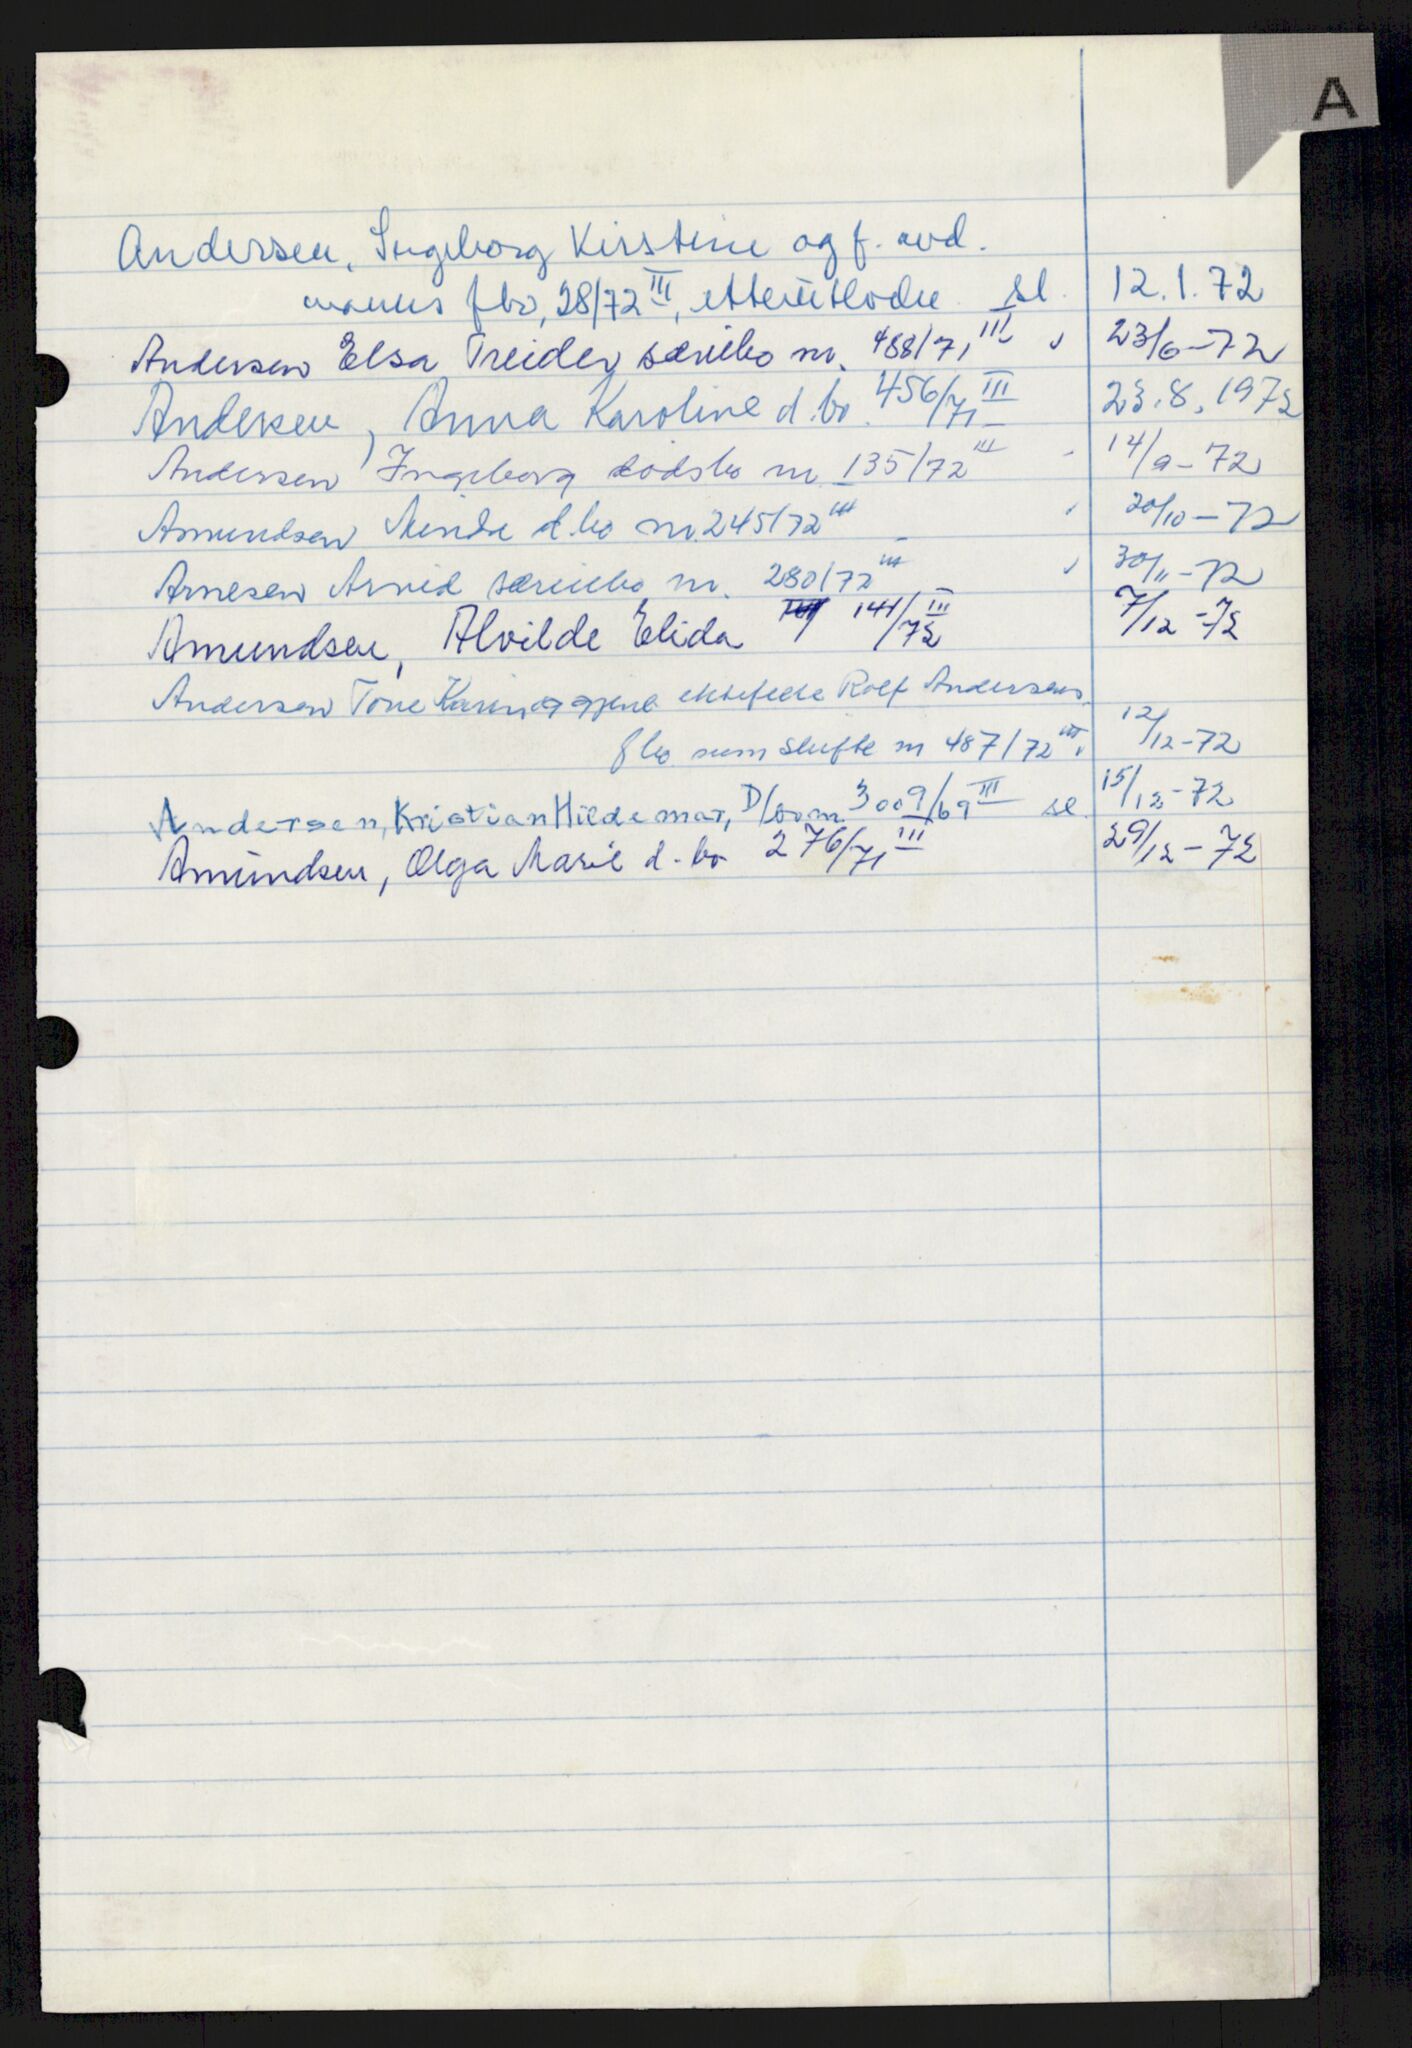 A
Andersen, Ingeborg Kirstine og f. avd.
manns fbo, 28/72 III, etterutlodn. sl. 12.1.72
Andersen Elsa Treider særiebo nr. 488/71 III 23/6-72
Andersen, Anna Karoline d.bo. 456/71 III 23.8.1972
Andersen Ingeborg dødsbo nr 135/72 III 14/9-72
Amundsen Minda d.bo nr. 245/72 III 20/10-72
Arnesen Arvid særiebo nr. 280/72 III 30/11-72
Amundsen, Alvilde Elida 141/72 III 7/12-72
Andersen Tone Karin og gjenl ektefelle Rolf Andersens
f bo sum skifte nr 487/72 III 12/12-72
Andersen, Kristian Hildemar, D/bo nr. 3009/69 III sl. 15/12-72
Amundsen, Olga Marie d.bo 276/71 III 29/12-72